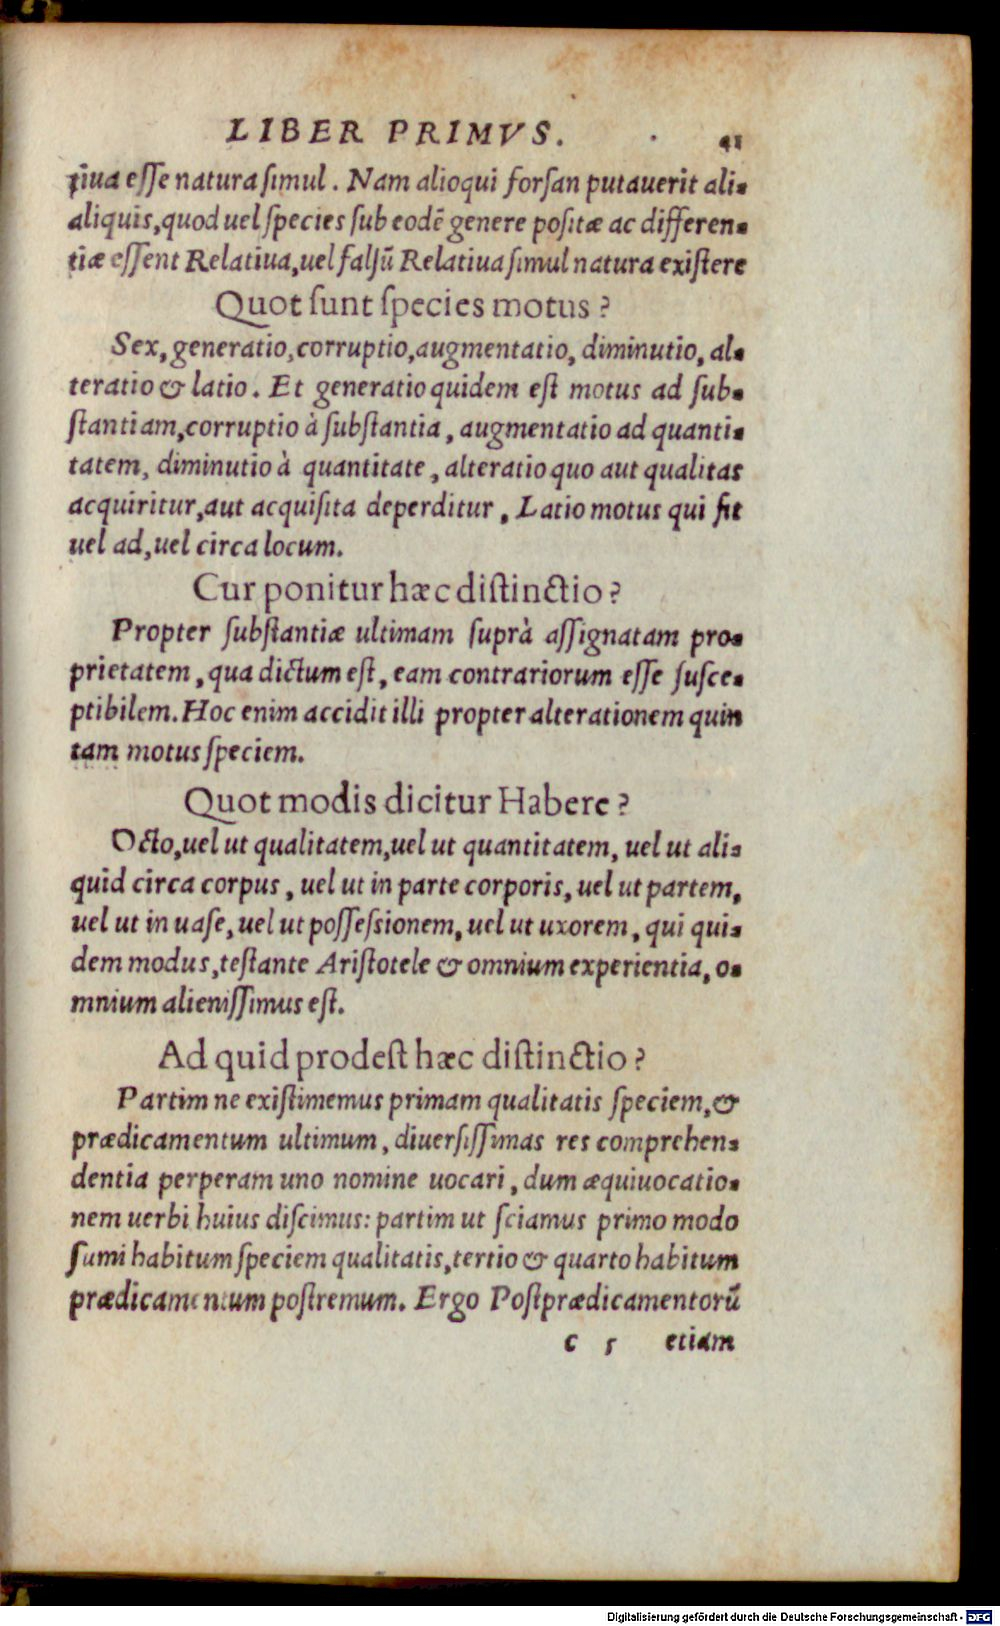 LIBER PRIMVS. 41
tiua esse natura simul. Nam alioqui forsan putauerit ali-
aliquis, quod uel species sub eodē genere positæ ac differen-
tiæ essent Relatiua, uel falsũ Relatiua simul natura existere
Quot sunt species motus?
Sex, generatio, corruptio, augmentatio, diminutio, al-
teratio & latio. Et generatio quidem est motus ad sub-
stantiam, corruptio à substantia, augmentatio ad quanti-
tatem, diminutio à quantitate, alteratio quo aut qualitas
acquiritur, aut acquisita deperditur, Latio motus qui fit
uel ad, uel circa locum.
Cur ponitur hæc distinctio?
Propter substantiæ ultimam suprà assignatam pro-
prietatem, qua dictum est, eam contrariorum esse susce-
ptibilem. Hoc enim accidit illi propter alterationem quin
tam motus speciem.
Quot modis dicitur Habere?
Octo, uel ut qualitatem, uel ut quantitatem, uel ut ali-
quid circa corpus, uel ut in parte corporis, uel ut partem,
uel ut in uase, uel ut possessionem, uel ut uxorem, qui qui-
dem modus, testante Aristotele & omnium experientia, o-
mnium alienissimus est.
Ad quid prodest hæc distinctio?
Partim ne existimemus primam qualitatis speciem, &
prædicamentum ultimum, diuersissimas res comprehen-
dentia perperam uno nomine uocari, dum æquiuocatio-
nem uerbi huius discimus: partim ut sciamus primo modo
sumi habitum speciem qualitatis, tertio & quarto habitum
prædicamentum postremum. Ergo Postprædicamentorũ
c 5 etiam
Digitalisierung gefördert durch die Deutsche Forschungsgemeinschaft - DFG